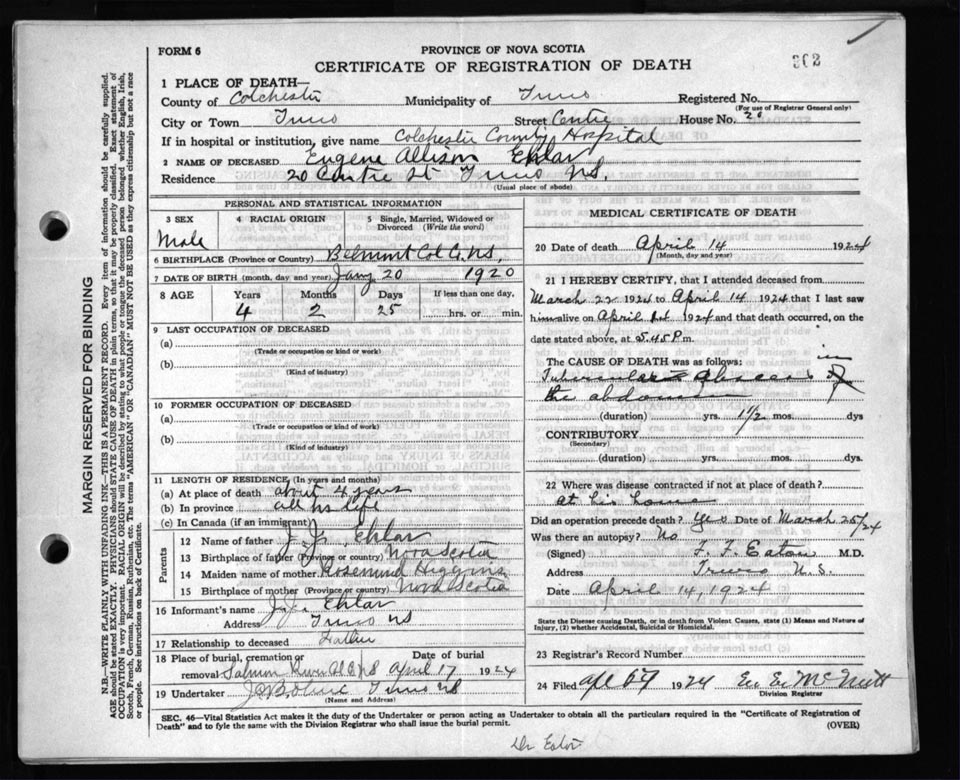 FORM 6
PROVINCE OF NOVA SCOTIA
CERTIFICATE OF REGISTRATION OF DEATH
302
1 PLACE OF DEATH—
County of Colchester Municipality of Truro Registered No.
(For use of Registrar General only)
City or Town Truro Street Centre House No. 20
If in hospital or institution, give name Colchester County Hospital
2 NAME OF DECEASED Eugene Allison Ehlar
Residence 20 Centre St Truro NS.
(Usual place of abode)
PERSONAL AND STATISTICAL INFORMATION
3 SEX 4 RACIAL ORIGIN 5 Single, Married, Widowed or Divorced (Write the word)
Male
6 BIRTHPLACE (Province or Country) Belmont Col Co, NS,
7 DATE OF BIRTH (month, day and year) Jany 20 1920
8 AGE Years Months Days If less than one day,
4 2 25 hrs. or min.
9 LAST OCCUPATION OF DECEASED
(a)
(Trade or occupation or kind or work)
(b)
(Kind of industry)
10 FORMER OCCUPATION OF DECEASED
(a)
(Trade or occupation or kind of work)
(b)
(Kind of industry)
11 LENGTH OF RESIDENCE (In years and months)
(a) At place of death about 4 years
(b) In province all his life
(c) In Canada (if an immigrant)
Parents
12 Name of father J. J. Ehlar
13 Birthplace of father (Province or country) Nova Scotia
14 Maiden name of mother Rosemund Higgins
15 Birthplace of mother (Province or country) Nova Scotia
16 Informant's name J. J. Ehlar
Address Truro NS
17 Relationship to deceased Father
18 Place of burial, cremation or removal Date of burial
Salmon River April 17 1924
19 Undertaker Truro NS
(Name and Address)
MEDICAL CERTIFICATE OF DEATH
20 Date of death April 14 1924
(Month, day and year)
21 I HEREBY CERTIFY, that I attended deceased from
March 22 1924 to April 14 1924 that I last saw
him alive on April 1924 and that death occurred, on the
date stated above, at 5.45 P m.
The CAUSE OF DEATH was as follows:
Tubercular abscess in
the abdomen
(duration) yrs. 1 1/2 mos. dys
CONTRIBUTORY
(Secondary)
(duration) yrs. mos. dys
22 Where was disease contracted if not at place of death?
at his home
Did an operation precede death? Yes Date of March 25/24
Was there an autopsy? No
(Signed) F. F. Eaton M.D.
Address Truro N.S.
Date April 14, 1924
State the Disease causing Death, or in death from Violent Causes, state (1) Means and Nature of
Injury, (2) whether Accidental, Suicidal or Homicidal.
23 Registrar's Record Number
24 Filed 1924 McNutt
Division Registrar
SEC. 46—Vital Statistics Act makes it the duty of the Undertaker or person acting as Undertaker to obtain all the particulars required in the "Certificate of Registration of
Death" and to fyle the same with the Division Registrar who shall issue the burial permit.
(OVER)
Dr Eaton
MARGIN RESERVED FOR BINDING
N.B.—WRITE PLAINLY WITH UNFADING INK—THIS IS A PERMANENT RECORD. Every item of information should be carefully supplied.
AGE should be stated EXACTLY. PHYSICIANS should STATE CAUSE OF DEATH in plain terms, so that it may be properly classified. Exact statement of
OCCUPATION is very important. RACIAL ORIGIN will be described by stating to what people or tongue the deceased person belonged whether English, Irish,
Scotch, French, German, Russian, Ruthenian, etc. The terms "AMERICAN" OR "CANADIAN" MUST NOT BE USED as they express citizenship but not a race
or people. See instructions on back of Certificate.